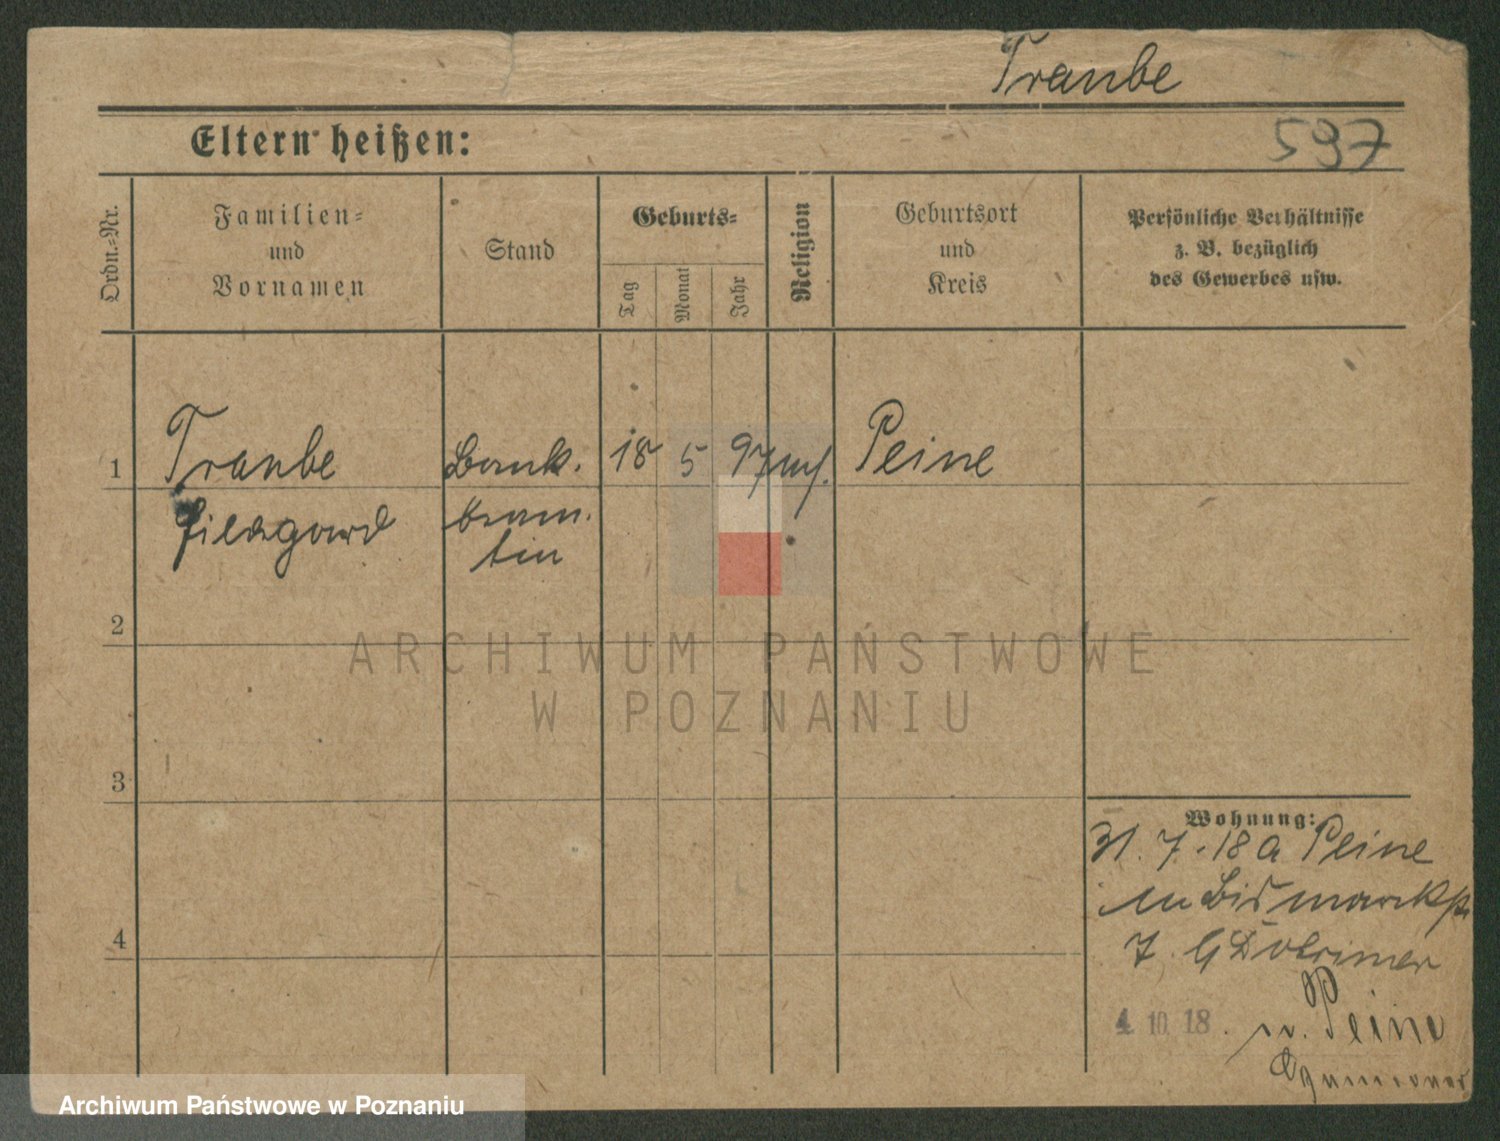 Traube
Eltern heißen:
597
Ordn.=Nr.
Familien=
und
Vornamen
Stand
Geburts=
Tag
Monat
Jahr
Religion
Geburtsort
und
Kreis
Persönliche Verhältnisse
z. B. bezüglich
des Gewerbes usw.
1
Traube
Hildegard
Bank.
beam.
tin
18
5
97
Peine
2
3
4
Wohnung:
31. 7. 18 a Peine
in Bismarckstr.
7.
4 10. 18. n. Peine
ARCHIWUM PAŃSTWOWE
W POZNANIU
Archiwum Państwowe w Poznaniu